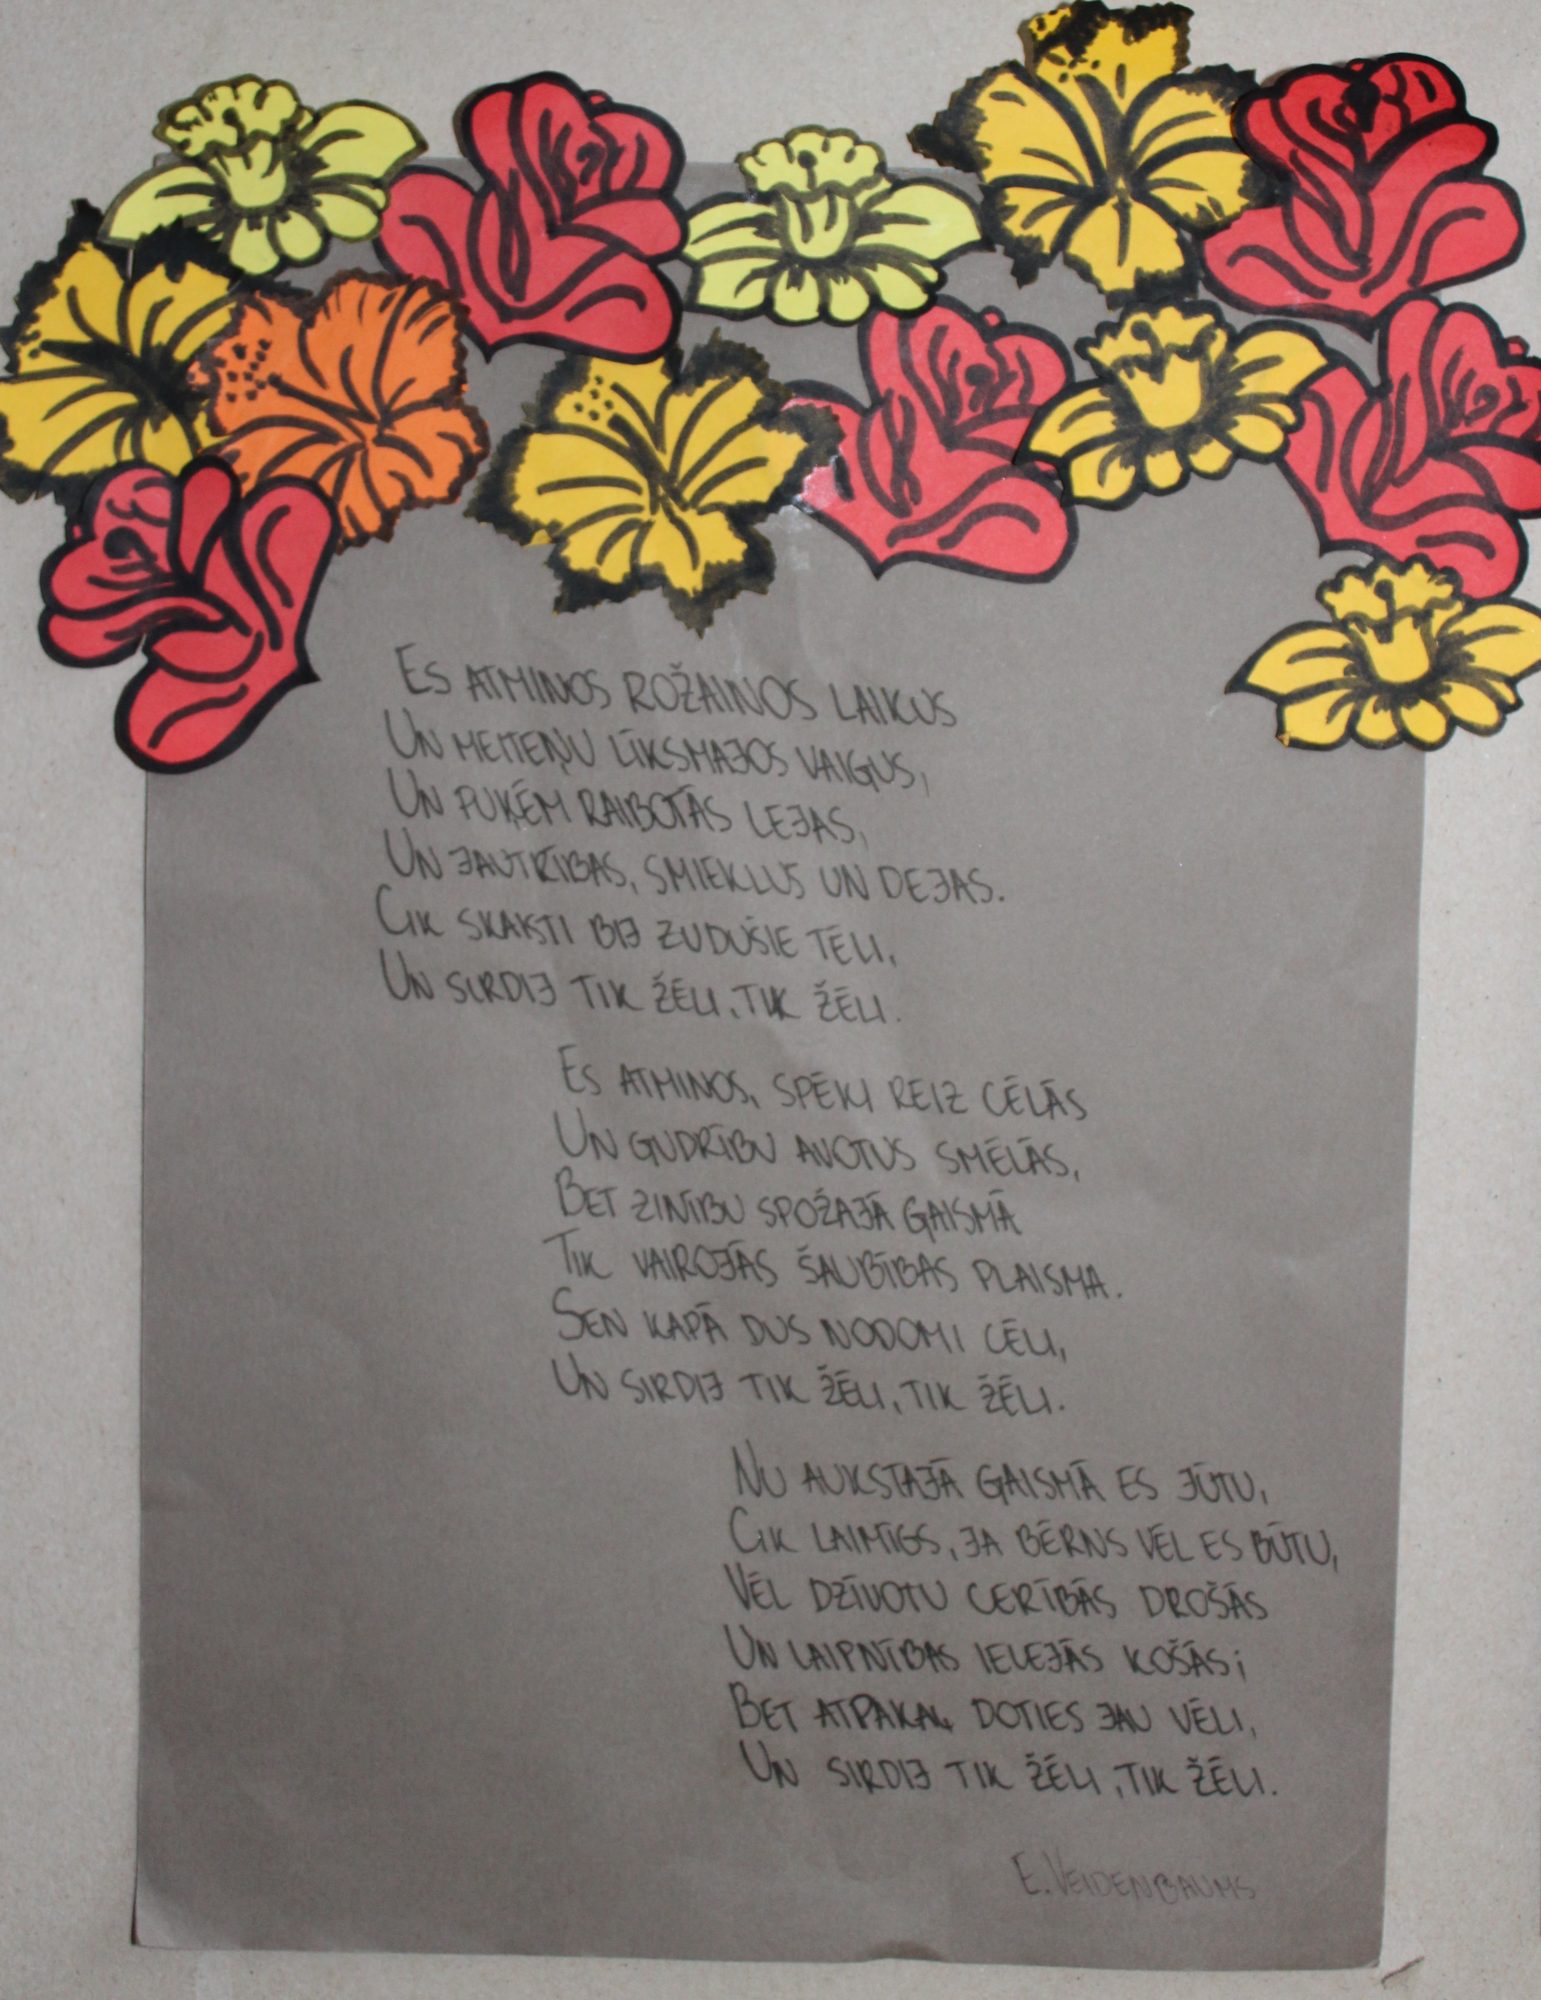 ES ATMINOS ROŽAINOS LAIKUS
UN MEITEŅU LĪKSMAJOS VAIGUS,
UN PUĶĒM RAIBOTĀS LEJAS,
UN JAUTRĪBAS, SMIEKLUS UN DEJAS.
CIK SKAISTI BIJ ZUDUŠIE TĒLI,
UN SIRDIJ TIK ŽĒLI, TIK ŽĒLI.
ES ATMINOS, SPĒKI REIZ CĒLĀS
UN GUDRĪBU AVOTUS SMĒLĀS,
BET ZINĪBU SPOŽAJĀ GAISMĀ
TIK VAIROJĀS ŠAUBĪBAS PLAISMA.
SEN KAPĀ DUS NODOMI CĒLI,
UN SIRDIJ TIK ŽĒLI, TIK ŽĒLI.
NU AUKSTAJĀ GAISMĀ ES JŪTU,
CIK LAIMĪGS, JA BĒRNS VĒL ES BŪTU,
VĒL DZĪVOTU CERĪBĀS DROŠĀS
UN LAIPNĪBAS IELEJĀS KOŠĀS;
BET ATPAKAĻ DOTIES JAU VĒLI,
UN SIRDIJ TIK ŽĒLI, TIK ŽĒLI.
E. VEIDENBAUMS